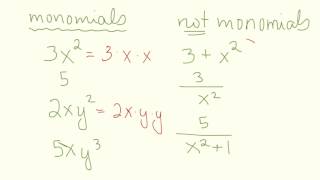 monomials
3x² = 3·x·x
5
2xy² = 2x·y·y
5xy³
not monomials
3 + x²
3
x²
5
x²+1